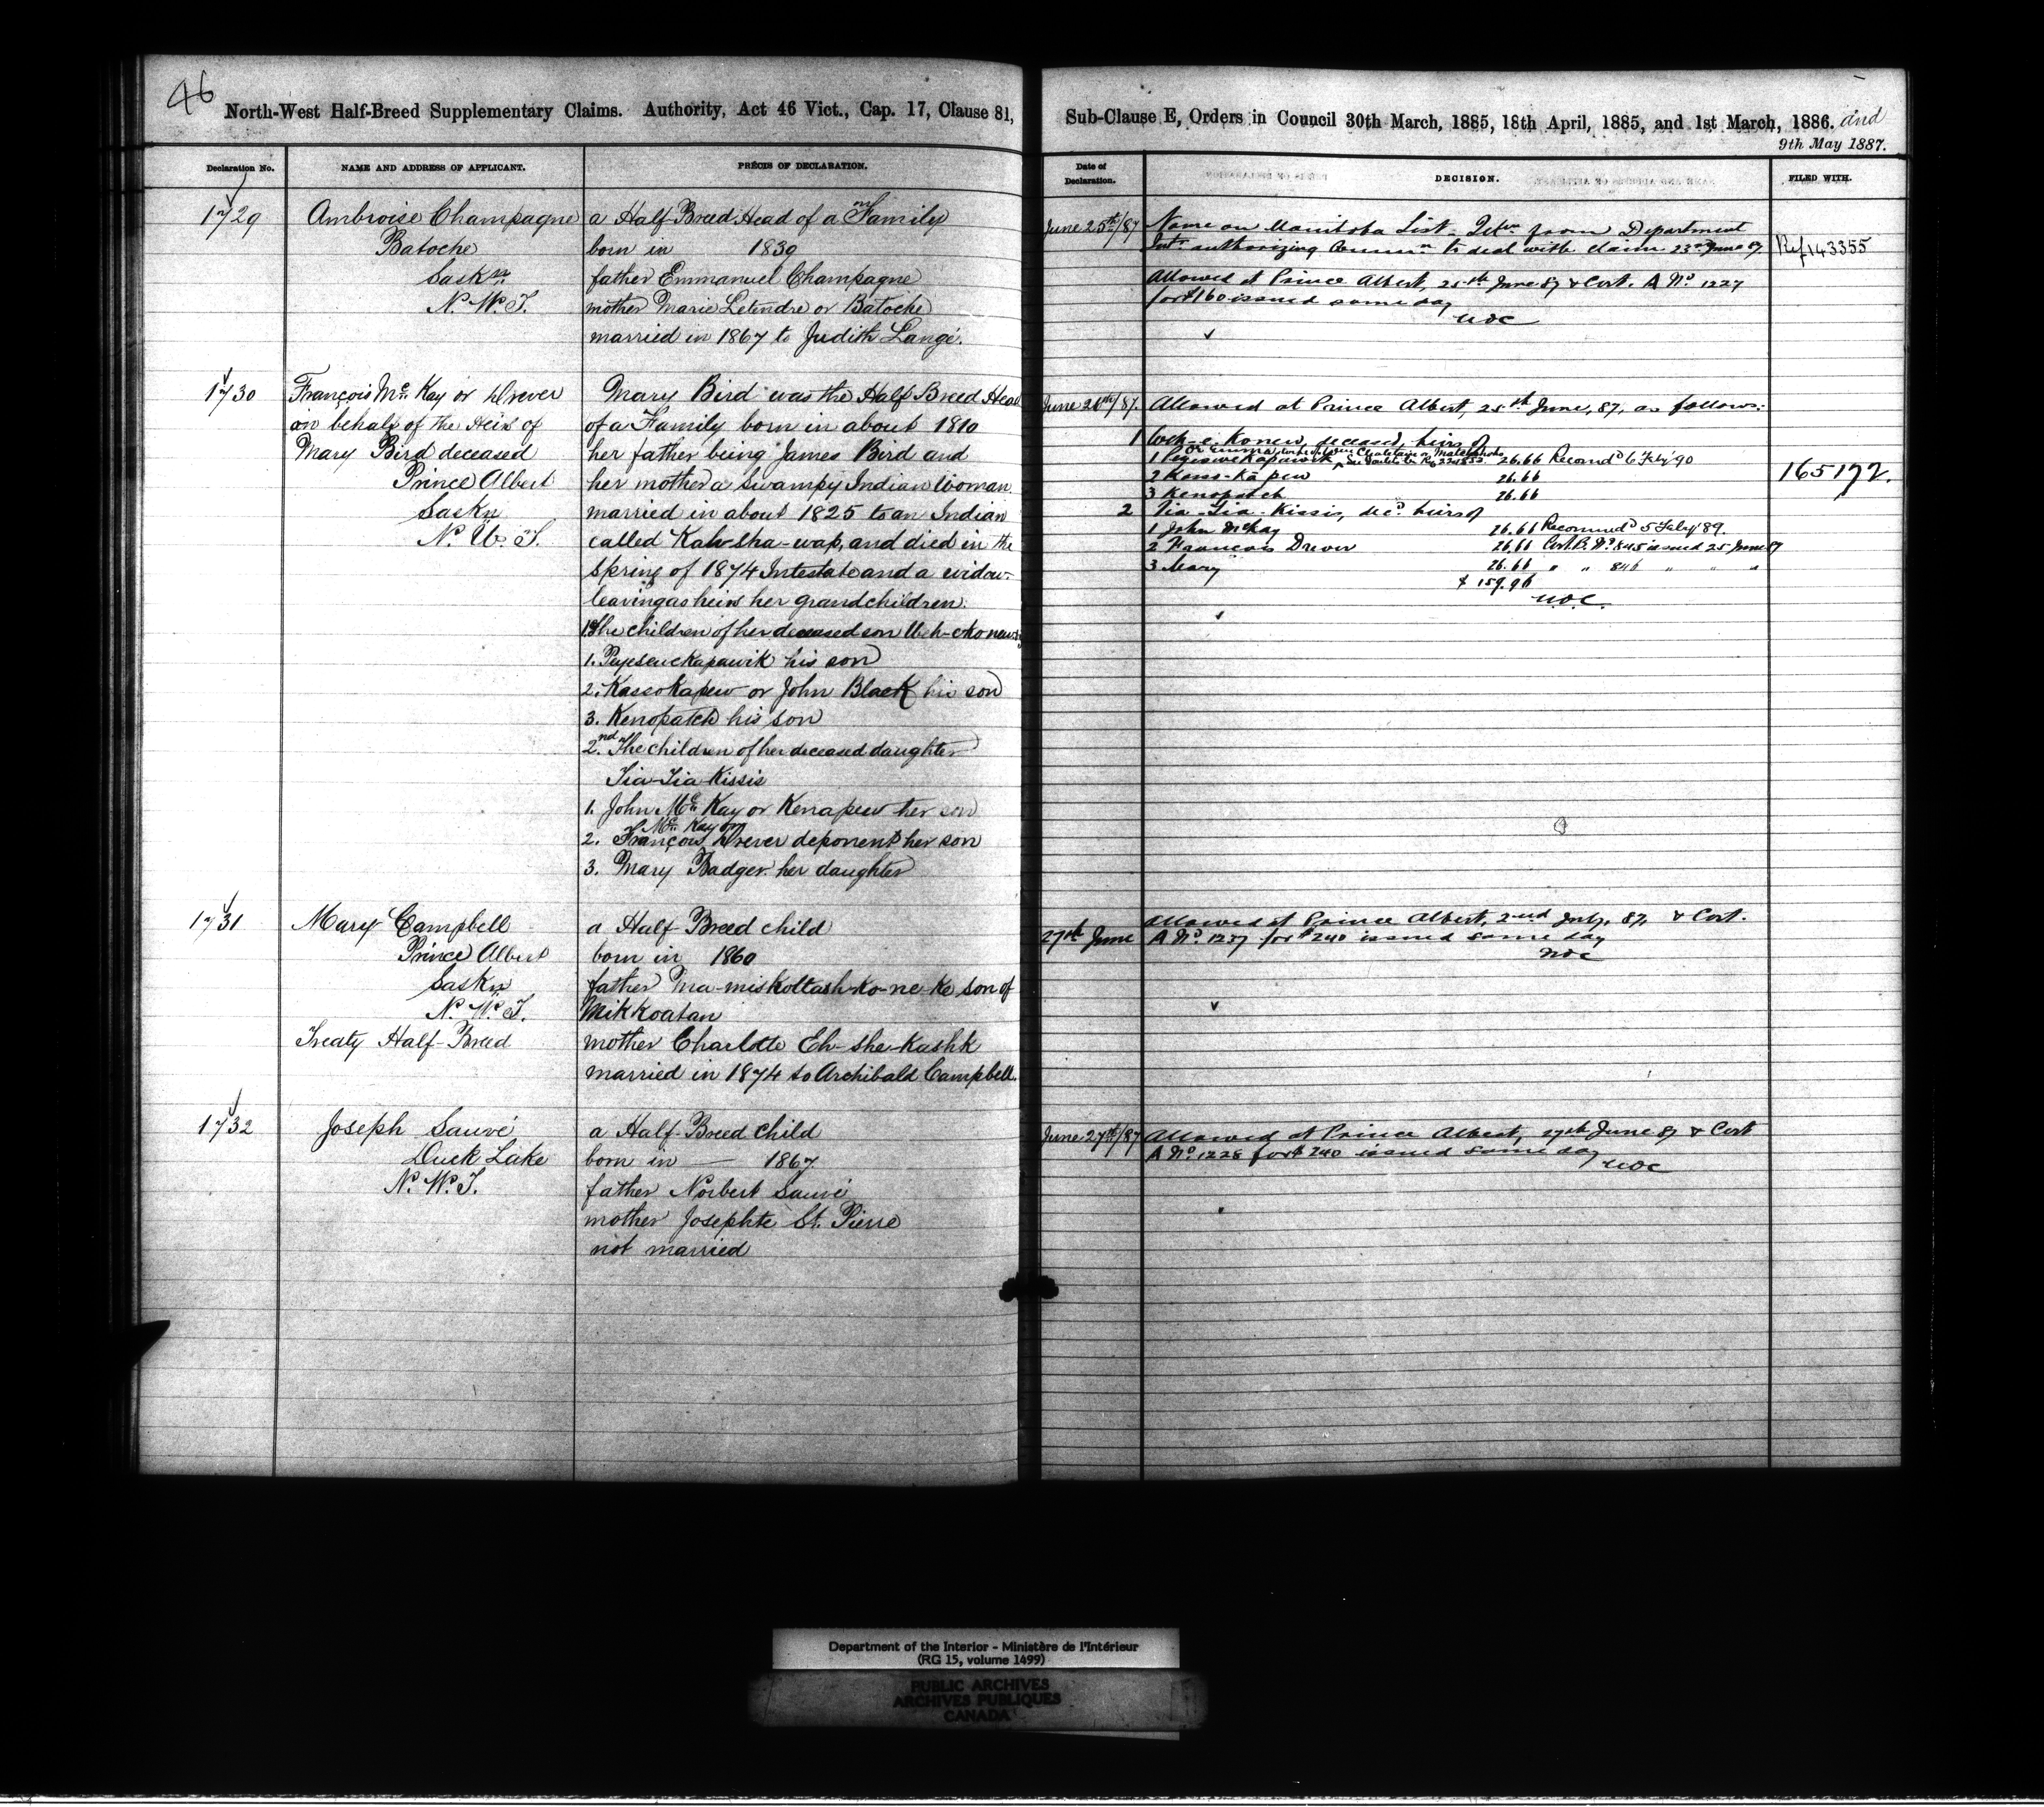 46
North-West Half-Breed Supplementary Claims. Authority, Act 46 Vict., Cap. 17, Clause 81,
Declaration No.
NAME AND ADDRESS OF APPLICANT.
PRÉCIS OF DECLARATION.
1729
Ambroise Champagne
Batoche
Saskn
N. W. T.
a Half-Breed Head of a Family
born in 1839
father Emmanuel Champagne
mother Marie Letendre or Batoche
married in 1867 to Judith Langé.
1730
François Mc Kay or Drever
on behalf of the Heirs of
Mary Bird deceased
Prince Albert
Saskn
N. W. T.
Mary Bird was the Half Breed Head
of a Family born in about 1810
her father being James Bird and
her mother a Swampy Indian Woman
married in about 1825 to an Indian
called Kah-sha-wap, and died in the
Spring of 1874 Intestate and a widow
leaving as heirs her grandchildren:
1st The children of her deceased son
1. his son
2. Kassokapew or John Black his son
3. Kenopatch his son
2.nd The children of her deceased daughter
Tia-Tia-Kissis
1. John Mc Kay or Kenapew her son
Mc Kay or
2. François Drever deponent her son
3. Mary Badger her daughter
1731
Mary Campbell
Prince Albert
Saskn
N. W. T.
Treaty Half-Breed
a Half Breed child
born in 1860
father Ma-miskottash-ko-ne-ke son of
Mikkoatan
mother Charlotte Eh-she-kashk
married in 1874 to Archibald Campbell.
1732
Joseph Sauvé
Duck Lake
N. W. T.
a Half-Breed child
born in — 1867
father Norbert Sauvé
mother Josephte St. Pierre
not married
Sub-Clause E, Orders in Council 30th March, 1885, 18th April, 1885, and 1st March, 1886. and
9th May 1887.
Date of
Declaration.
DECISION.
FILED WITH.
June 25th/87
Name on Manitoba List. from Department
authorizing to deal with claim 23rd June 87.
Ref 143355
Allowed at Prince Albert, 25th June 87 & Cert. A No 1227
for $160 issued same day
June 20th/87.
Allowed at Prince Albert, 25th June, 87, as follows:
1 deceased, heirs of
1 26.66 Recomd 6 Feby '90
165172.
2 Kass-ka pew 26.66
3 Kenopatch 26.66
2 Tia-Tia-Kissis, decd heirs of
1 John McKay 26.66 Recommd 5 Feby '89.
2 Francois Drever 26.66 Cert. B. No 845 issued 25 June 87
3 Mary 26.66 " " 846 " " "
$ 159.96
27th June
Allowed at Prince Albert, 2nd July, 87, & Cert.
A No 1237 for $240 issued same day
June 27th/87
Allowed at Prince Albert, 27th June 87 & Cert
A No. 1228 for $240 issued same day
Department of the Interior - Ministère de l'Intérieur
(RG 15, volume 1499)
PUBLIC ARCHIVES
ARCHIVES PUBLIQUES
CANADA